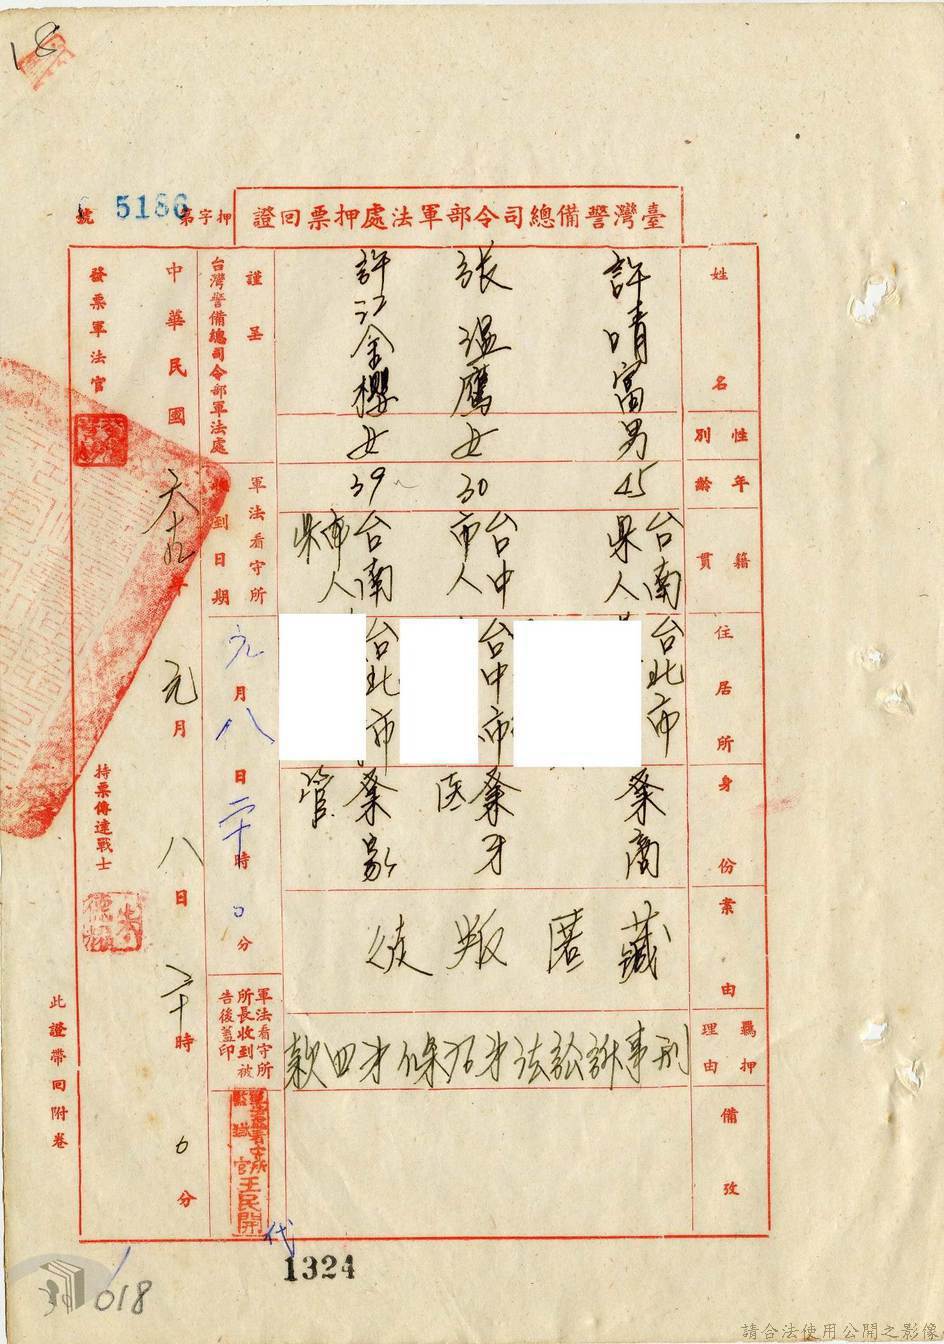 18
臺灣警備總司令部軍法處押票回證
押字第 5186 號
姓名
性別
年齡
籍貫
住居所
身份
案由
羈押理由
備攷
許晴富
男
45
台南
県人
台北市
業商
張溫鷹
女
30
台中
市人
台中市
業牙
医
許江金櫻
女
39
台南
県人
台北市
業家
管
藏匿叛徒
刑事訴訟法第76條第四款
謹呈
台灣警備總司令部軍法處
軍法看守所
收到日期
元月八日二十時0分
軍法看守所
所長收到被
告後蓋印
軍法看守所
監獄官王民開
代
中華民國六十九年元月八日二十時0分
發票軍法官
持票傳達戰士
此證帶回附卷
1324
018
請合法使用公開之影像